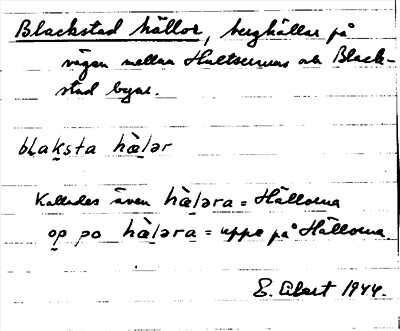 Blackstad hällor, berghällar på
vägen mellan Hultserums och Black-
stad byar.
blaksta hàlər
Kallades även hàləra = Hällorna
op po hàləra = uppe på Hällorna
E. Eibert 1944.